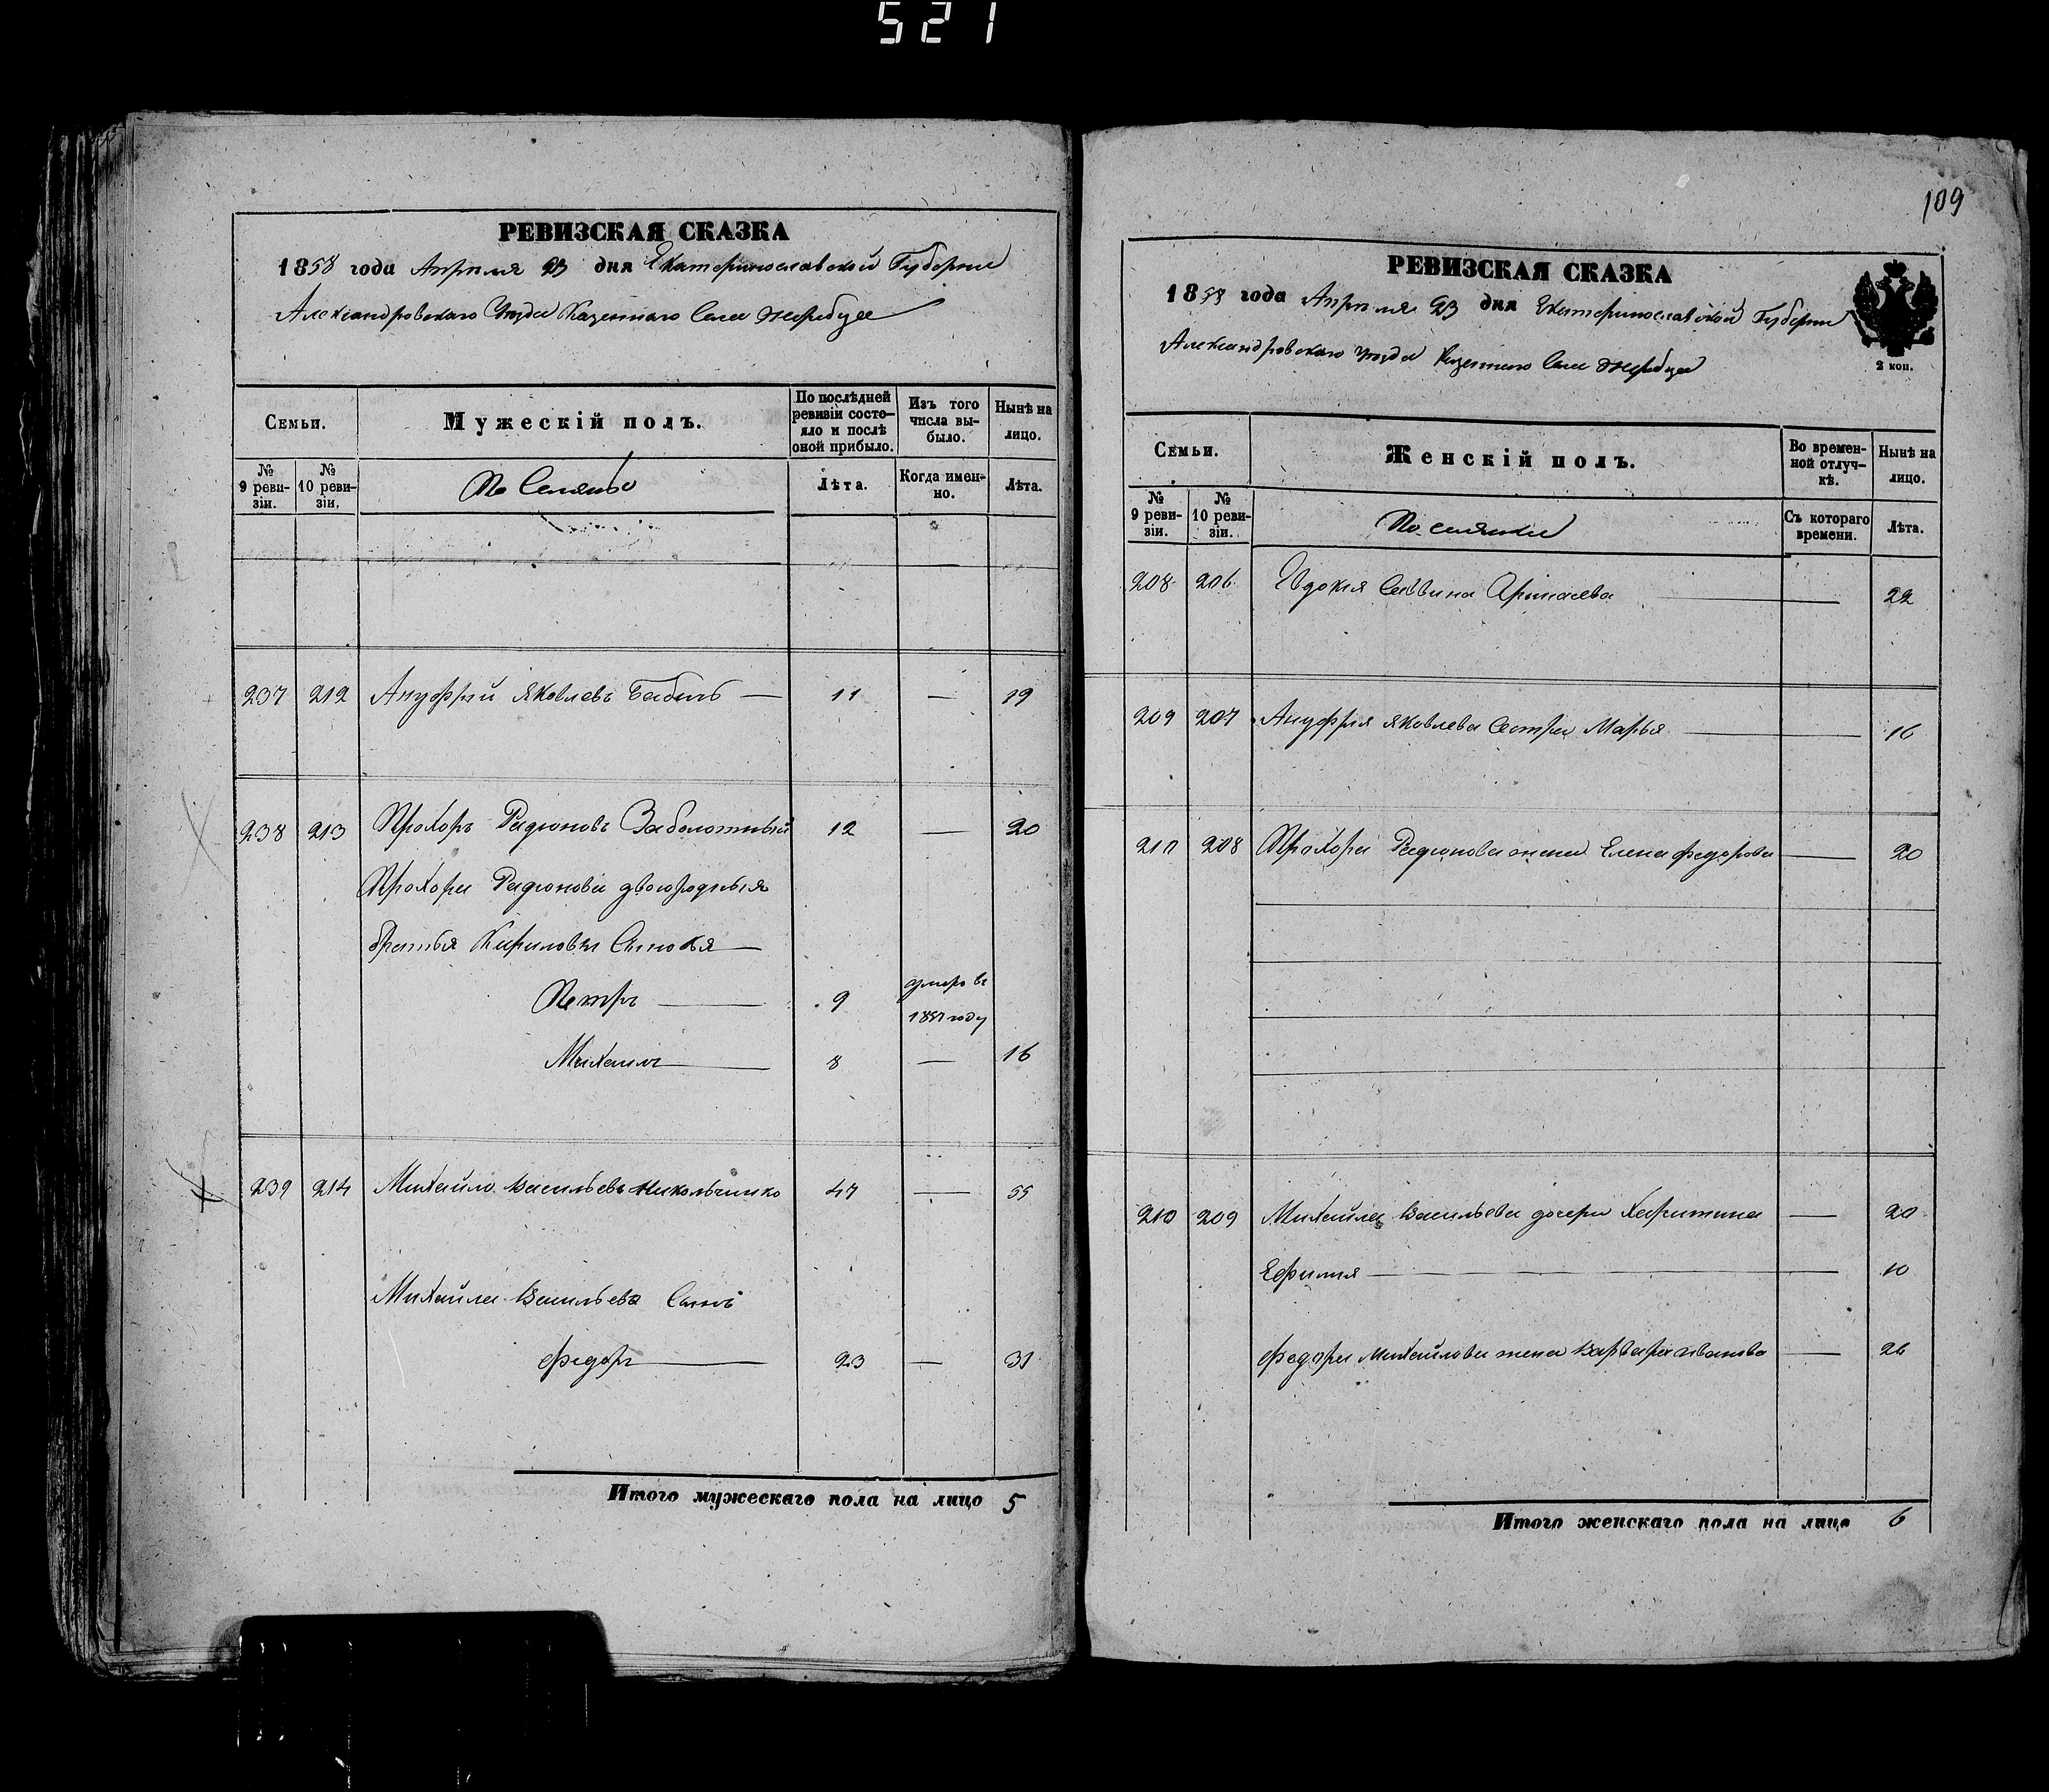 521
РЕВИЗСКАЯ СКАЗКА
1858 года Апреля 23 дня Екатеринославской Губернии
Александровскаго Уезда Казеннаго Села Жеребца
Семьи.
Мужескій полъ.
По послѣдней ревизіи состояло и послѣ оной прибыло.
Изъ того числа выбыло.
Нынѣ на лицо.
№ 9 ревизіи.
№ 10 ревизіи.
Поселянъ
Лѣта.
Когда именно.
Лѣта.
237 212 Ануфрий Яковлевъ Бабичъ — 11 — 19
238 213 Прохоръ Радионовъ Заболотный 12 — 20
Прохора Радионова двоюродныя
братья Кириловы Сыновья —
Петръ — 9 умеръ въ
1857 году
Михаилъ — 8 — 16
239 214 Михайло Васильевъ 47 — 55
Михайла Васильева Сынъ
Федоръ — 23 — 31
Итого мужескаго пола на лицо 5
109
РЕВИЗСКАЯ СКАЗКА
1858 года Апреля 23 дня Екатеринославской Губернии
Александровскаго Уезда Казеннаго Села Жеребца
2 коп.
Семьи.
Женскій полъ.
Во временной отлучкѣ.
Нынѣ на лицо.
№ 9 ревизіи.
№ 10 ревизіи.
Поселянки
Съ котораго времени.
Лѣта.
208 206 Евдокия Саввина — 22
209 207 Ануфрия Яковлева Сестра Марья — 16
210 208 Прохора Радионова жена Елена Федорова — 20
210 209 Михайла Васильева дочери Харитина — 20
Ефимия — 10
Федора Михайлова жена Варвара Иванова — 26
Итого женскаго пола на лицо 6